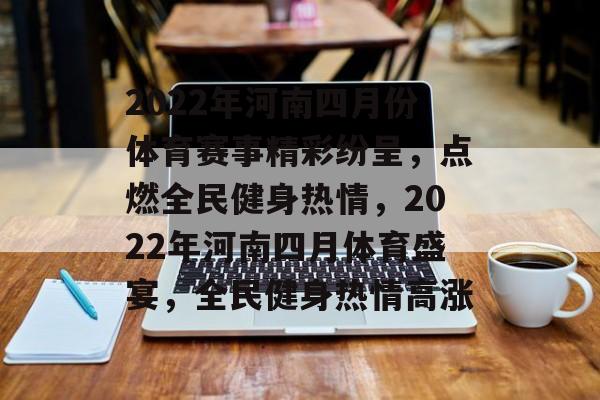 2022年河南四月份
体育赛事精彩纷呈，点
燃全民健身热情，20
22年河南四月体育盛
宴，全民健身热情高涨